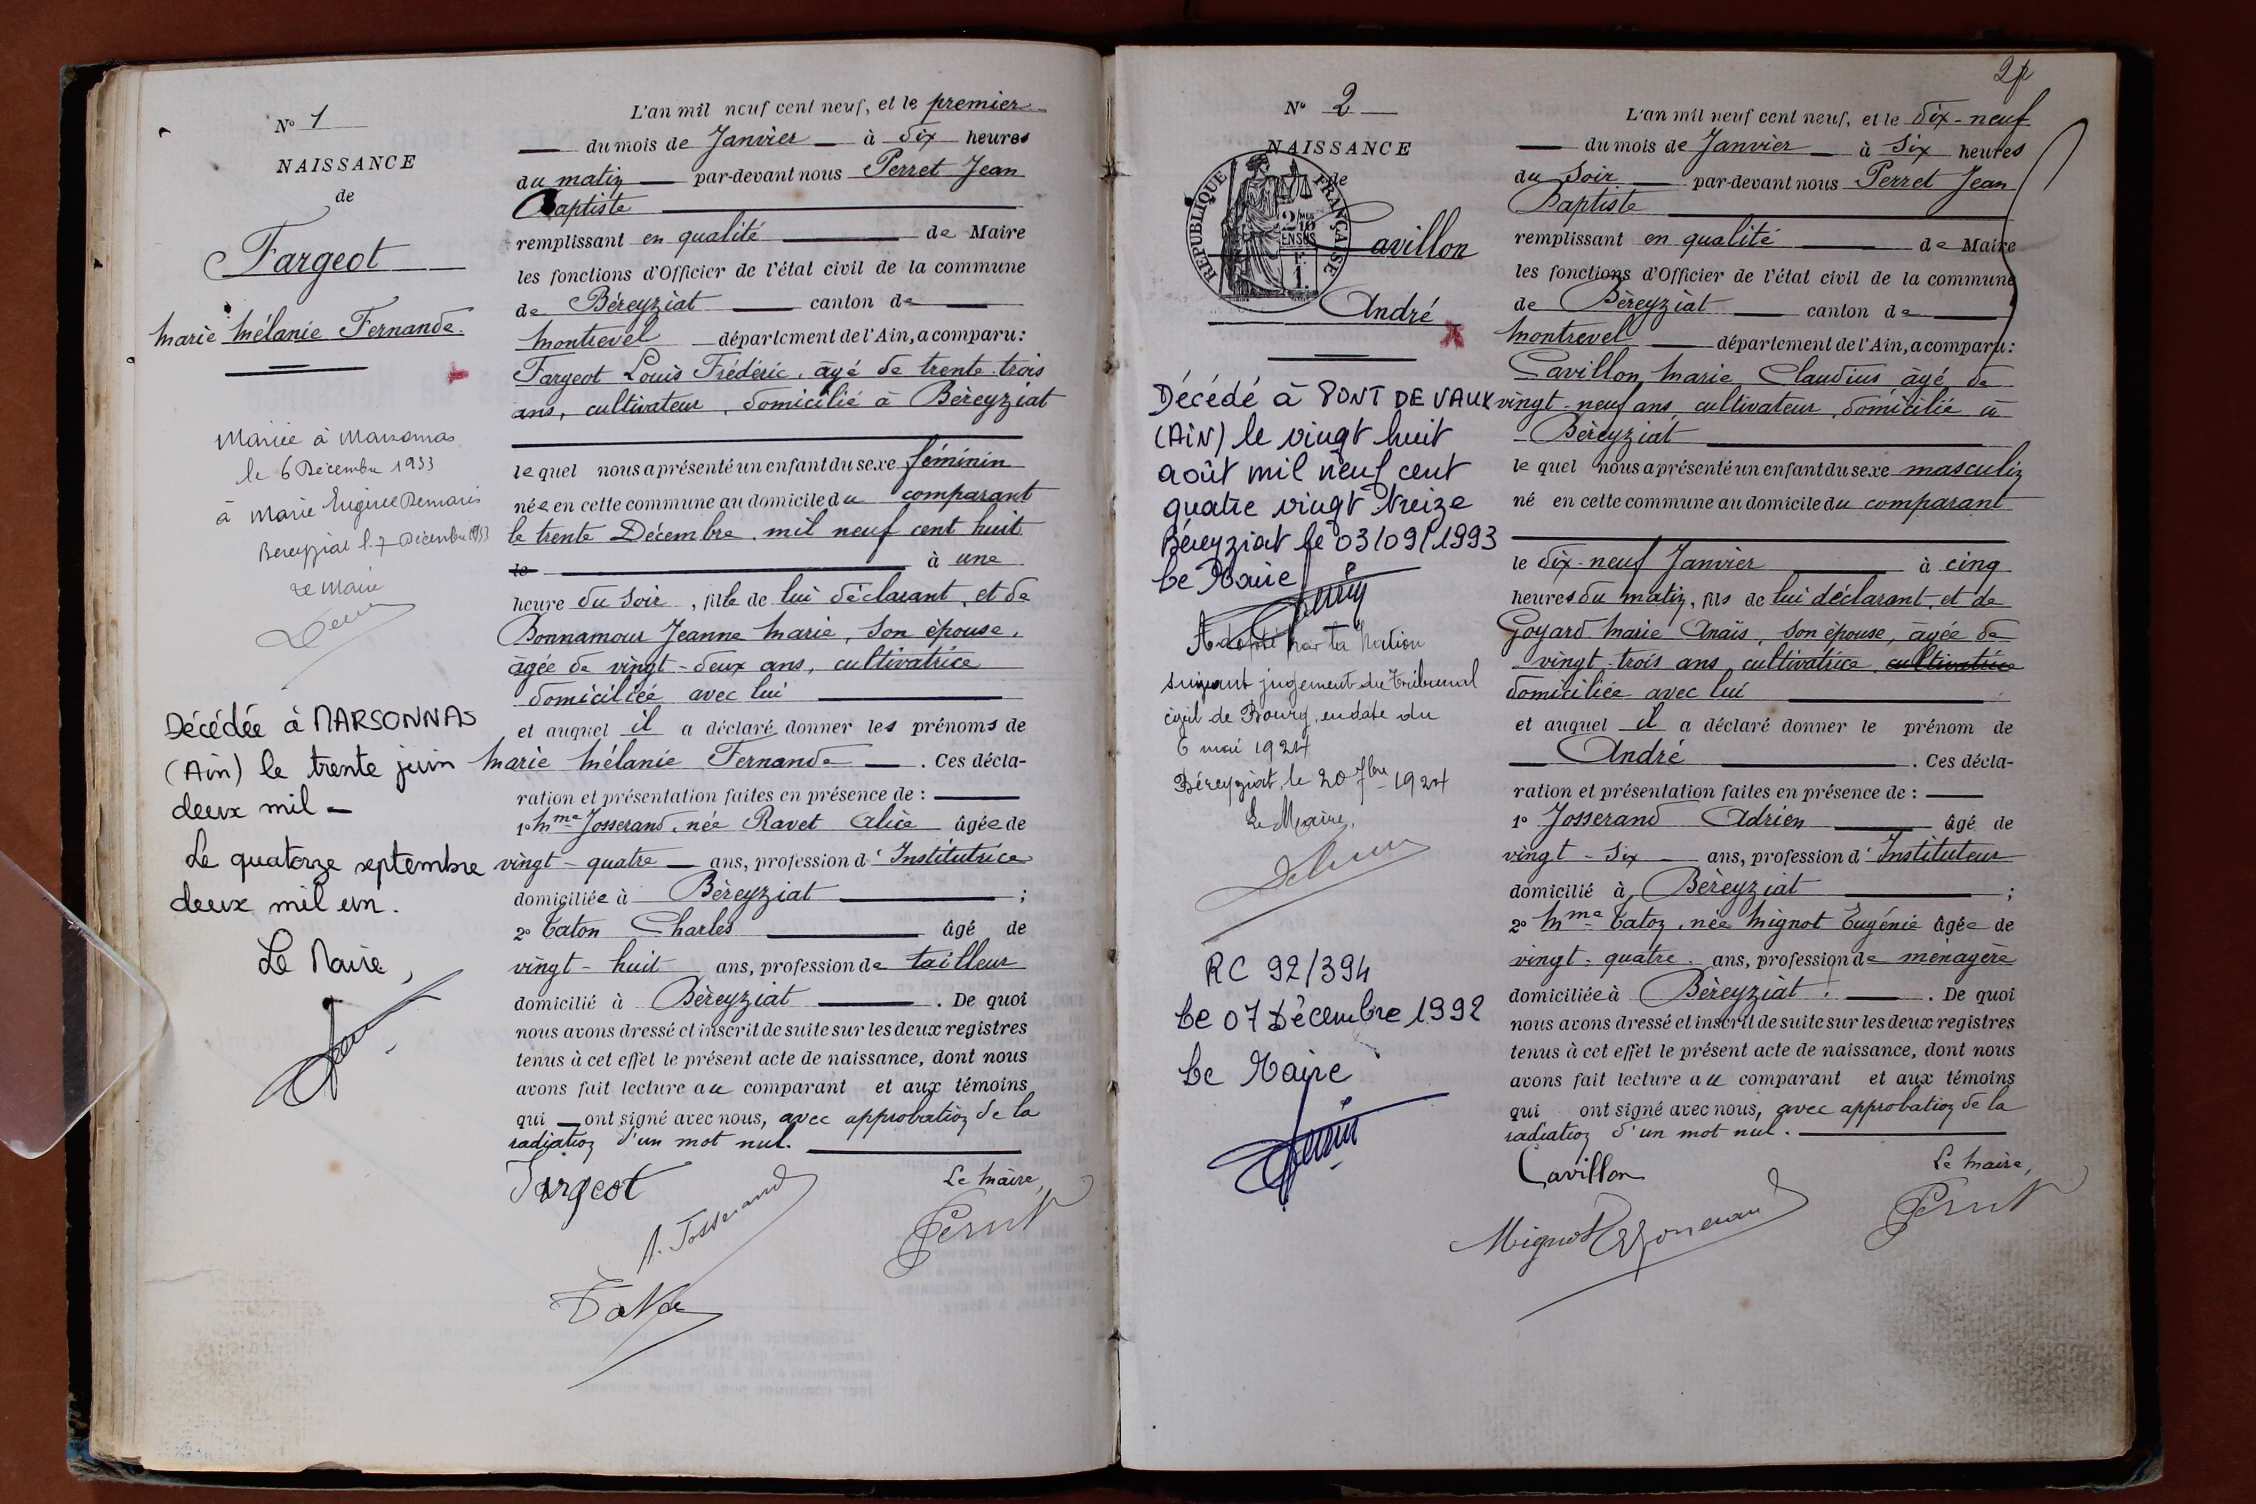 Nº 1
NAISSANCE
de
Fargeot
Marie Mélanie Fernande.
Mariée à Marsonnas
le 6 Décembre 1933
à Marie Eugène Demaris
Bereyziat l. 7 Décembre 1933
Le Maire
Décédée à MARSONNAS
(Ain) le trente juin
deux mil -
Le quatorze septembre
deux mil un.
Le Maire,
L'an mil neuf cent neuf, et le premier
du mois de Janvier à dix heures
du matin par-devant nous Perret Jean
Baptiste
remplissant en qualité de Maire
les fonctions d'Officier de l'état civil de la commune
de Béreyziat canton de
Montrevel département de l'Ain, a comparu :
Fargeot Louis Frédéric, âgé de trente-trois
ans, cultivateur, domicilié à Bèreyziat
lequel nous a présenté un enfant du sexe féminin
née en cette commune au domicile du comparant
le trente Décembre mil neuf cent huit
le à une
heure du soir, fille de lui déclarant, et de
Bonnamour Jeanne Marie, son épouse,
âgée de vingt-deux ans, cultivatrice
domiciliée avec lui
et auquel il a déclaré donner les prénoms de
Marie Mélanie Fernande. Ces décla-
ration et présentation faites en présence de :
1º Mme Josserand, née Ravet Alice âgée de
vingt-quatre ans, profession d'Institutrice
domiciliée à Bèreyziat ;
2º Taton Charles âgé de
vingt-huit ans, profession de tailleur
domicilié à Bèreyziat. De quoi
nous avons dressé et inscrit de suite sur les deux registres
tenus à cet effet le présent acte de naissance, dont nous
avons fait lecture au comparant et aux témoins
qui ont signé avec nous, avec approbation de la
radiation d'un mot nul.
Fargeot
Le Maire,
A. Josserand
Perret
Taton
2
Nº 2
NAISSANCE
de
REPUBLIQUE FRANÇAISE
2/10 EN SUS
1 F.
Cavillon
André
Décédé à PONT DE VAUX
(AiN) le vingt huit
août mil neuf cent
quatre vingt treize
Béreyziat le 03/09/1993
Le Maire
Adopté par la Nation
suivant jugement du Tribunal
civil de Bourg, en date du
6 mai 1924
Béreyziat, le 20 7bre 1924
Le Maire,
RC 92/394
Le 07 Décembre 1992
Le Maire
L'an mil neuf cent neuf, et le dix-neuf
du mois de Janvier à six heures
du soir par-devant nous Perret Jean
Baptiste
remplissant en qualité de Maire
les fonctions d'Officier de l'état civil de la commune
de Bèreyziat canton de
Montrevel département de l'Ain, a comparu :
Cavillon Marie Claudius âgé de
vingt-neuf ans, cultivateur, domicilié à
Bèreyziat
lequel nous a présenté un enfant du sexe masculin
né en cette commune au domicile du comparant
le dix-neuf Janvier à cinq
heures du matin, fils de lui déclarant, et de
Goyard Marie Anaïs, son épouse, âgée de
vingt-trois ans, cultivatrice cultivatrice
domiciliée avec lui
et auquel il a déclaré donner le prénom de
André. Ces décla-
ration et présentation faites en présence de :
1º Josserand Adrien âgé de
vingt-six ans, profession d'Instituteur
domicilié à Bèreyziat ;
2º Mme Taton, née Mignot Eugénie âgée de
vingt-quatre ans, profession de ménagère
domiciliée à Bèreyziat. De quoi
nous avons dressé et inscrit de suite sur les deux registres
tenus à cet effet le présent acte de naissance, dont nous
avons fait lecture au comparant et aux témoins
qui ont signé avec nous, avec approbation de la
radiation d'un mot nul.
Cavillon
Le Maire,
Mignot
Perret